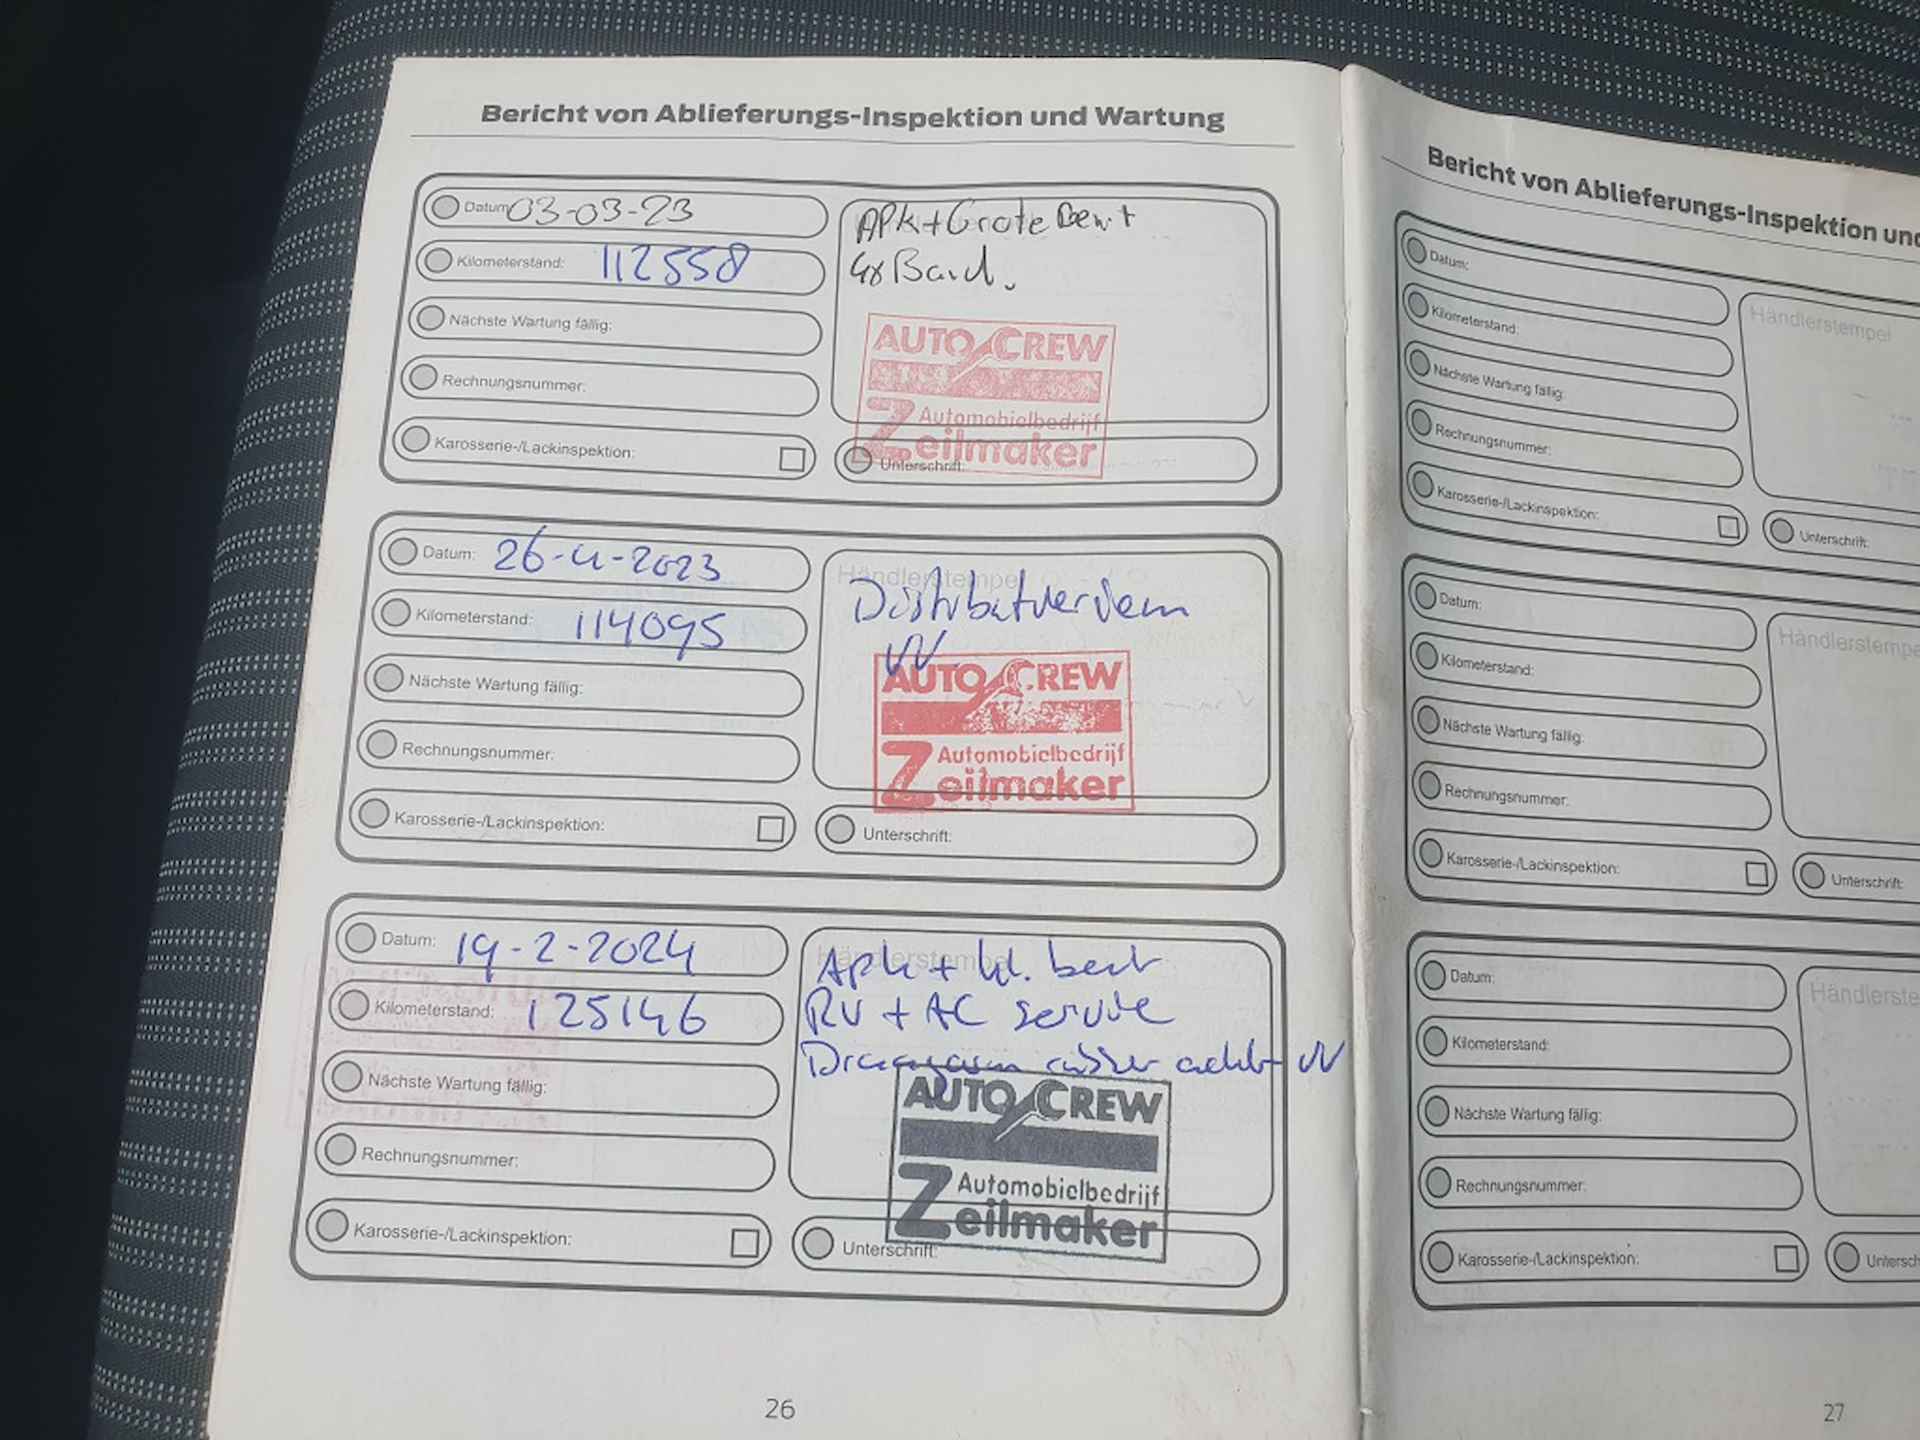 Bericht von Ablieferungs-Inspektion und Wartung
Datum: 03-03-23
Kilometerstand: 112558
Nächste Wartung fällig:
Rechnungsnummer:
Karosserie-/Lackinspektion:
APK + Grote Beurt
4x Band.
AUTO CREW
Automobielbedrijf
Zeilmaker
Unterschrift:
Datum: 26-4-2023
Kilometerstand: 114095
Nächste Wartung fällig:
Rechnungsnummer:
Karosserie-/Lackinspektion:
Händlerstempel
Distributieriem
VV
AUTO CREW
Automobielbedrijf
Zeilmaker
Unterschrift:
Datum: 19-2-2024
Kilometerstand: 125146
Nächste Wartung fällig:
Rechnungsnummer:
Karosserie-/Lackinspektion:
Händlerstempel
Apk + kl. beurt
RV + AC service
Draagarm rubber achter VV
AUTO CREW
Automobielbedrijf
Zeilmaker
Unterschrift:
26
Bericht von Ablieferungs-Inspektion und
Datum:
Kilometerstand:
Nächste Wartung fällig:
Rechnungsnummer:
Karosserie-/Lackinspektion:
Händlerstempel
Unterschrift:
Datum:
Kilometerstand:
Nächste Wartung fällig:
Rechnungsnummer:
Karosserie-/Lackinspektion:
Händlerstempe
Unterschrift:
Datum:
Kilometerstand:
Nächste Wartung fällig:
Rechnungsnummer:
Karosserie-/Lackinspektion:
Händlerste
Untersch
27